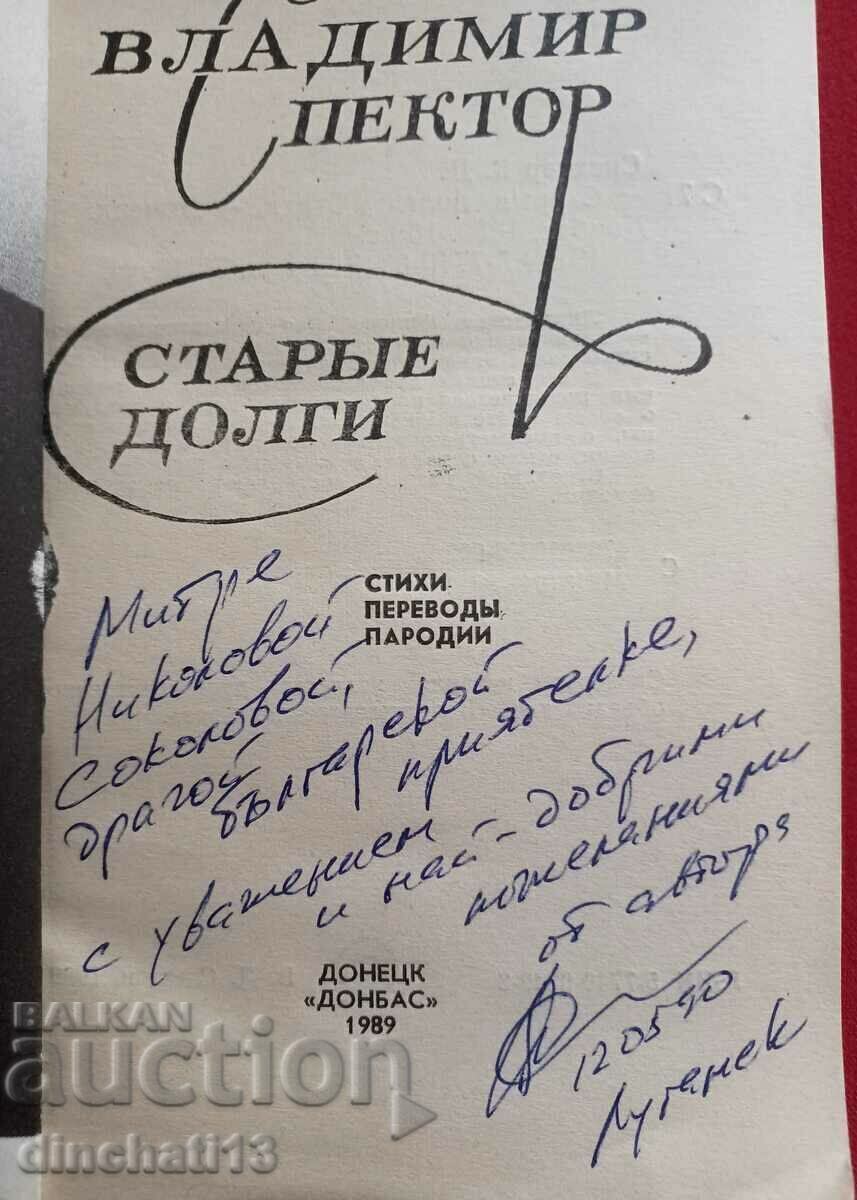 ВЛАДИМИР
СПЕКТОР
СТАРЫЕ
ДОЛГИ
СТИХИ
ПЕРЕВОДЫ
ПАРОДИИ
Митре
Николовой
Соколовой,
драгой
българской
приятелке,
с уважением
и най-добрыми
пожеланиями
от автора
120590
Луганск
ДОНЕЦК
«ДОНБАС»
1989
BALKAN
auction
dinchati13